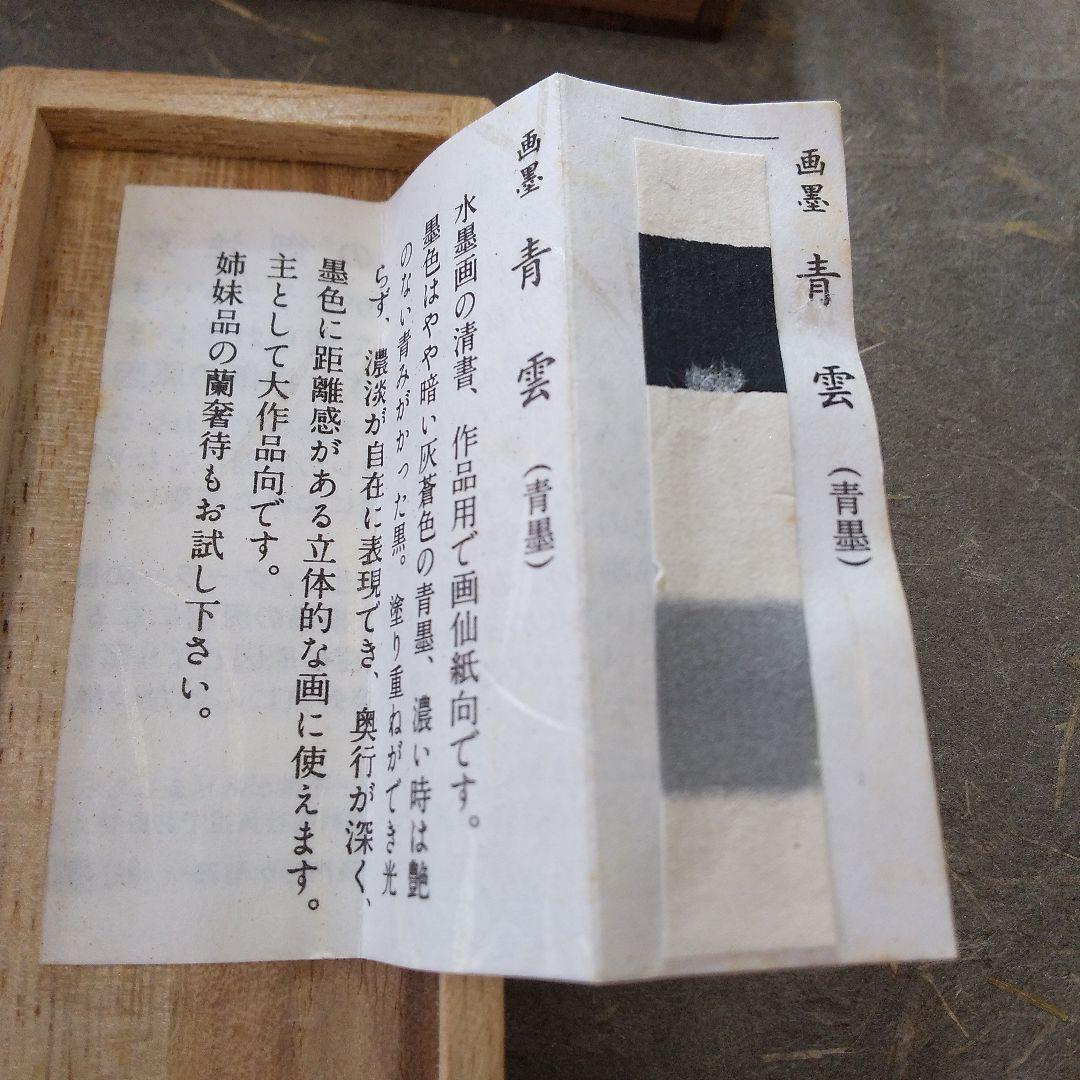 画墨 青雲 (青墨)
画墨 青雲 (青墨)
水墨画の清書、作品用で画仙紙向です。
墨色はやや暗い灰蒼色の青墨、濃い時は艶
のない青みがかった黒。塗り重ねができ光
らず、濃淡が自在に表現でき、奥行が深く、
墨色に距離感がある立体的な画に使えます。
主として大作品向です。
姉妹品の蘭奢待もお試し下さい。